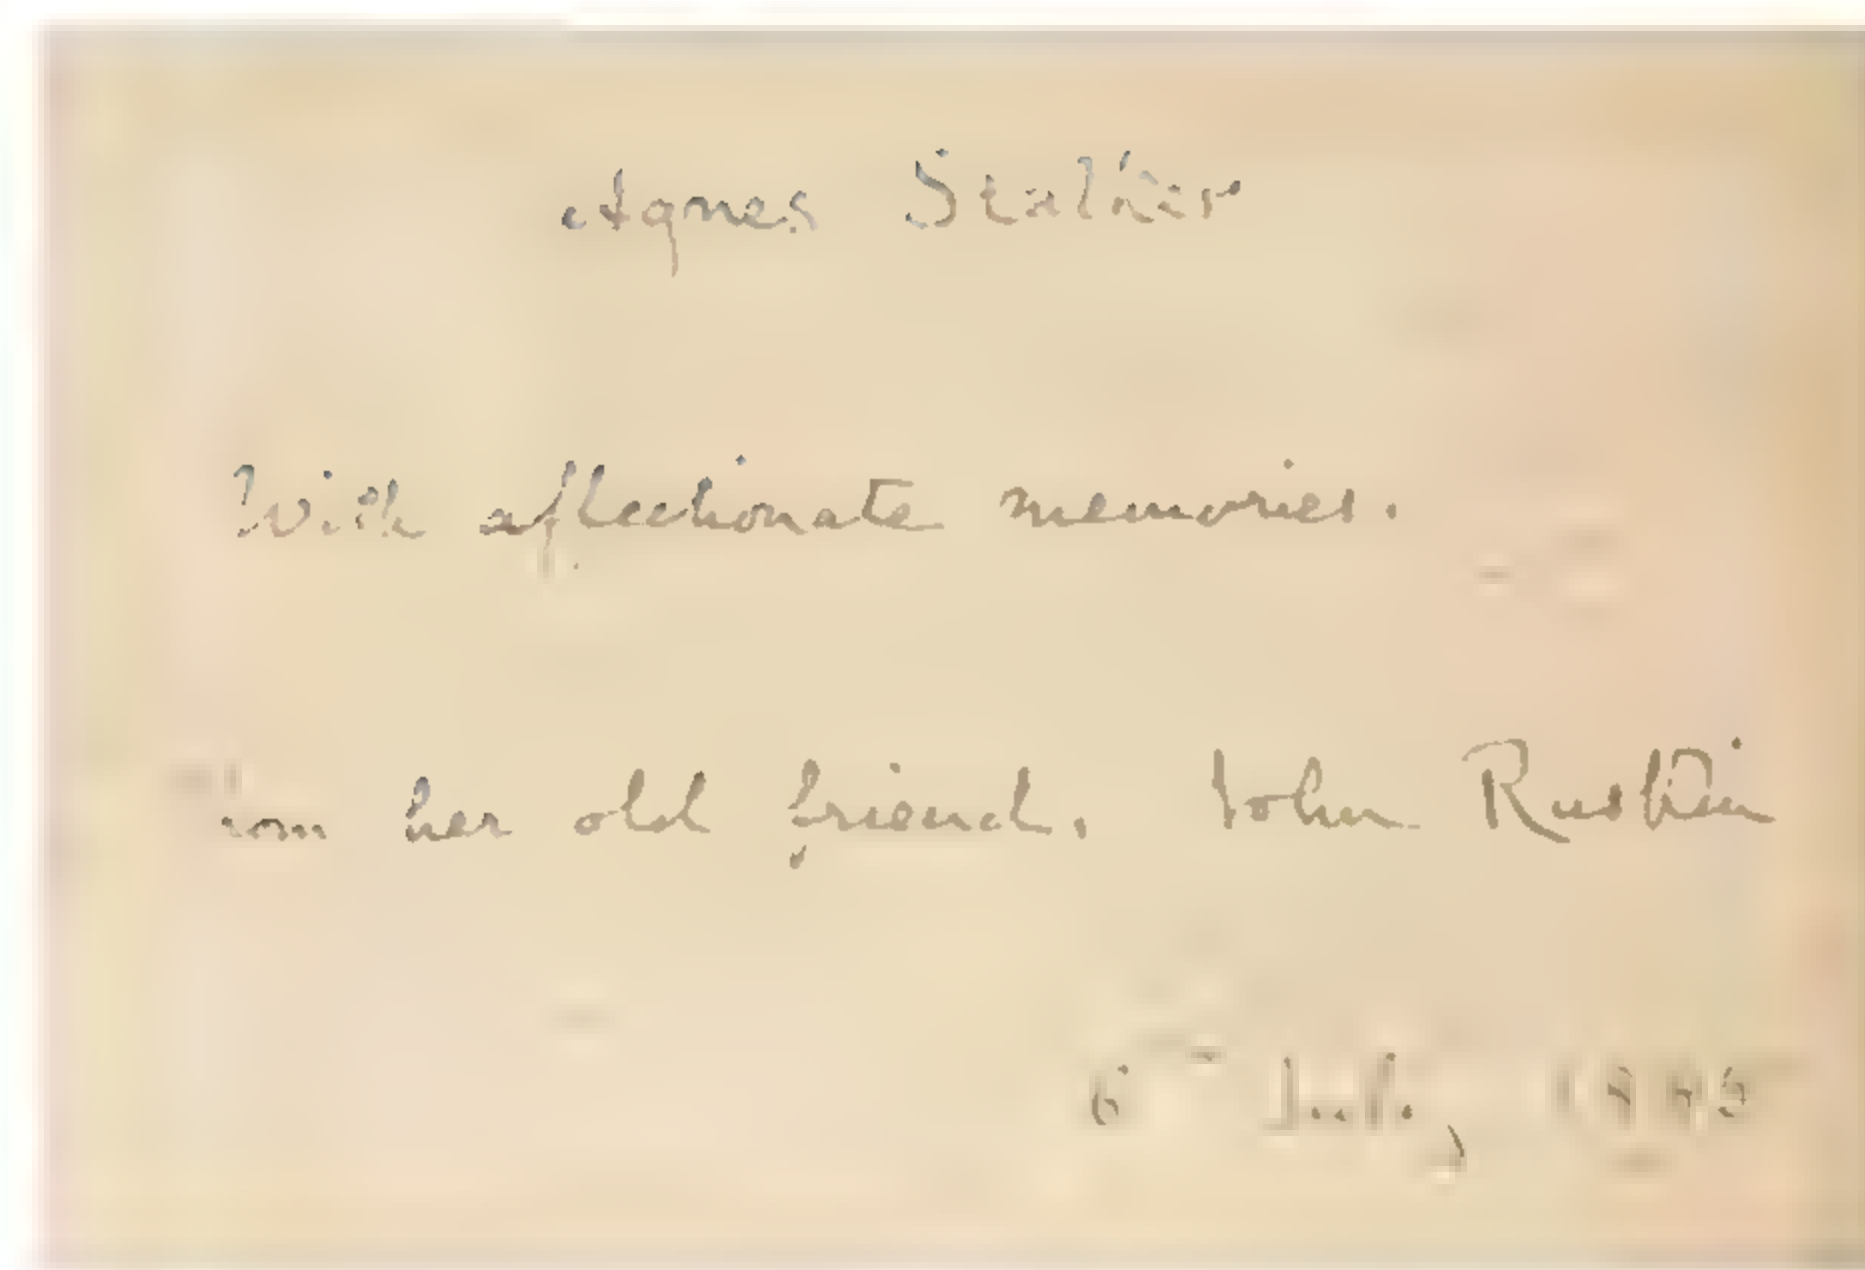 Agnes Stalker
With affectionate memories.
from her old friend. John Ruskin
6th July